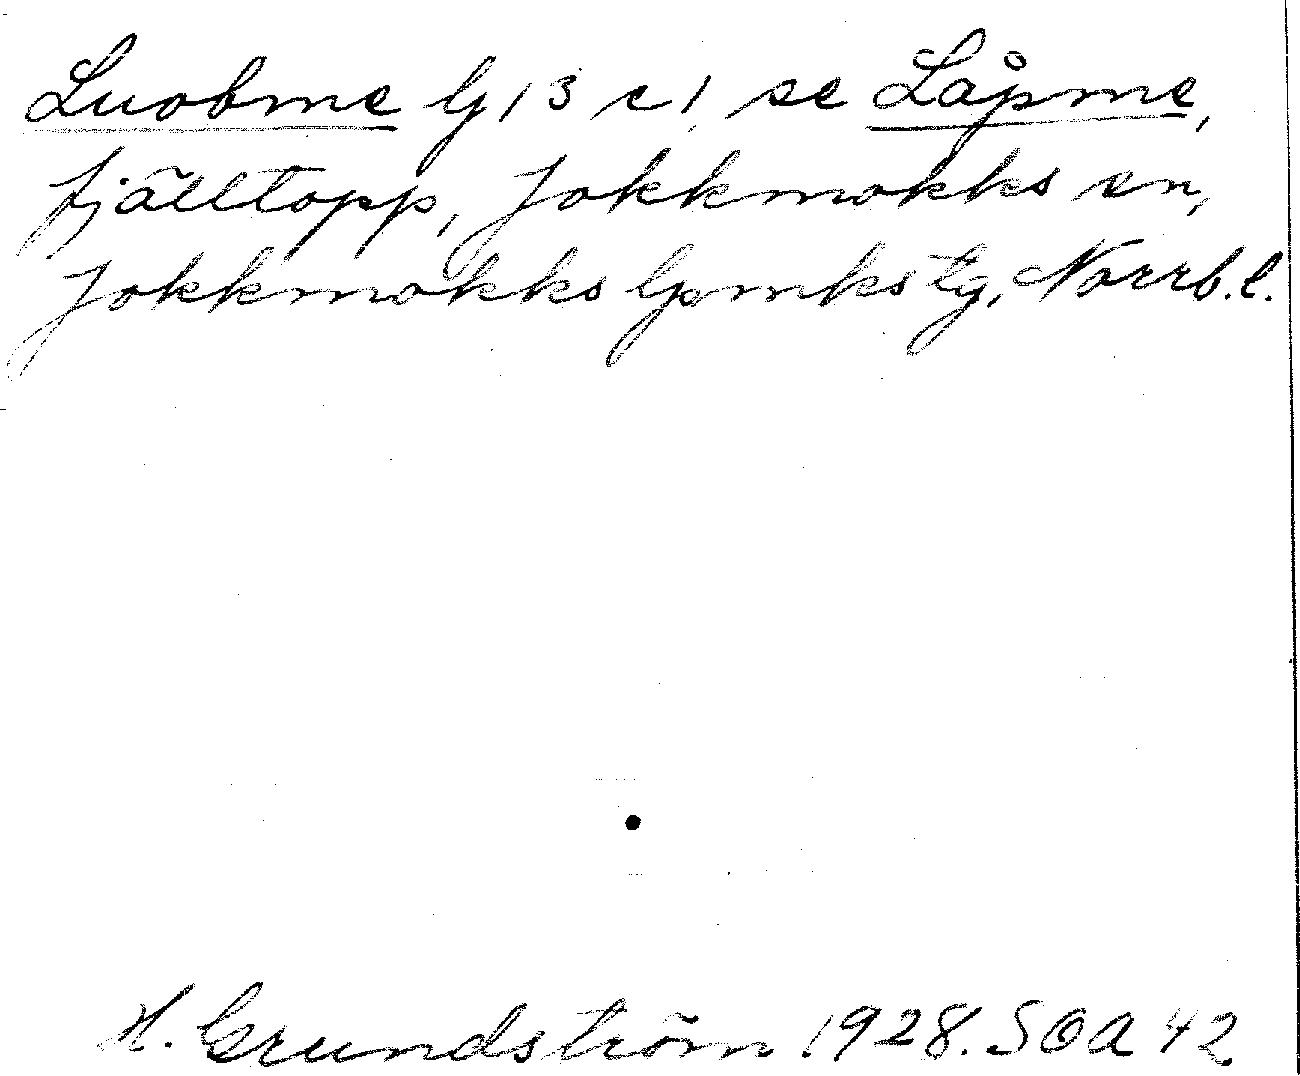 Luobme G13c1, se Låpme,
fjälltopp, Jokkmokks sn,
Jokkmokks lpmks tg, Norrb.l.
H. Grundström 1928. SOA 42